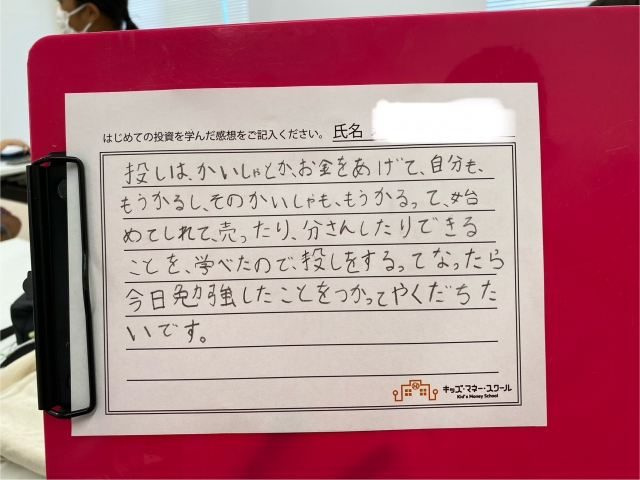 はじめての投資を学んだ感想をご記入ください。 氏名
投しは、かいしゃとか、お金をあげて、自分も、
もうかるし、そのかいしゃも、もうかるって、始
めてしれて、売ったり、分さんしたりできる
ことを、学べたので、投しをするってなったら
今日勉強したことをつかってやくだちた
いです。
キッズ・マネー・スクール
Kid's Money School